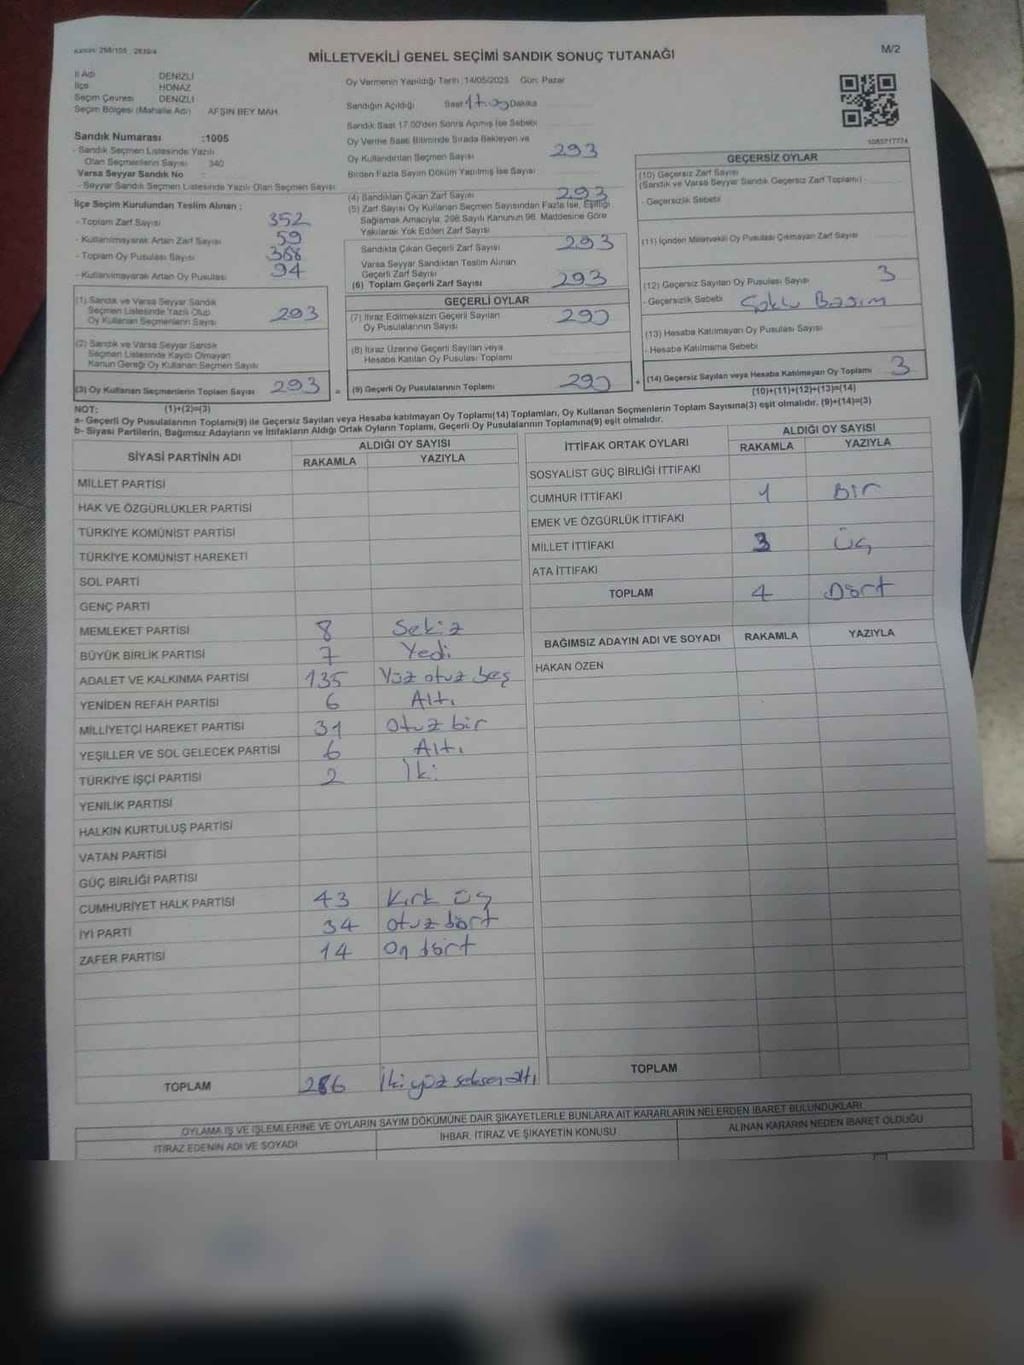 Kanun: 298/105 , 2839/4
M/2
MİLLETVEKİLİ GENEL SEÇİMİ SANDIK SONUÇ TUTANAĞI
İl Adı DENİZLİ
İlçe HONAZ
Seçim Çevresi DENİZLİ
Seçim Bölgesi (Mahalle Adı) AFŞİN BEY MAH
Sandık Numarası :1005
- Sandık Seçmen Listesinde Yazılı
Olan Seçmenlerin Sayısı 340
Varsa Seyyar Sandık No
- Seyyar Sandık Seçmen Listesinde Yazılı Olan Seçmen Sayısı
İlçe Seçim Kurulundan Teslim Alınan :
- Toplam Zarf Sayısı 352
- Kullanılmayarak Artan Zarf Sayısı 59
- Toplam Oy Pusulası Sayısı
- Kullanılmayarak Artan Oy Pusulası 94
(1) Sandık ve Varsa Seyyar Sandık
Seçmen Listesinde Yazılı Olup
Oy Kullanan Seçmenlerin Sayısı 293
(2) Sandık ve Varsa Seyyar Sandık
Seçmen Listesinde Kaydı Olmayan
Kanun Gereği Oy Kullanan Seçmen Sayısı
(3) Oy Kullanan Seçmenlerin Toplam Sayısı 293 =
(1)+(2)=(3)
Oy Vermenin Yapıldığı Tarih :14/05/2023 Gün: Pazar
Sandığın Açıldığı Saat 17.00 Dakika
Sandık Saat 17.00'den Sonra Açılmış İse Sebebi
Oy Verme Saati Bitiminde Sırada Bekleyen ve
Oy Kullandırılan Seçmen Sayısı 293
Birden Fazla Sayım Döküm Yapılmış İse Sayısı
(4) Sandıktan Çıkan Zarf Sayısı 293
(5) Zarf Sayısı Oy Kullanan Seçmen Sayısından Fazla İse, Eşitliği
Sağlamak Amacıyla, 298 Sayılı Kanunun 98. Maddesine Göre
Yakılarak Yok Edilen Zarf Sayısı
Sandıkta Çıkan Geçerli Zarf Sayısı 293
Varsa Seyyar Sandıktan Teslim Alınan
Geçerli Zarf Sayısı
(6) Toplam Geçerli Zarf Sayısı 293
GEÇERLİ OYLAR
(7) İtiraz Edilmeksizin Geçerli Sayılan
Oy Pusulalarının Sayısı 290
(8) İtiraz Üzerine Geçerli Sayılan veya
Hesaba Katılan Oy Pusulası Toplamı
(9) Geçerli Oy Pusulalarının Toplamı 290 +
1083717774
GEÇERSİZ OYLAR
(10) Geçersiz Zarf Sayısı
(Sandık ve Varsa Seyyar Sandık Geçersiz Zarf Toplamı)
- Geçersizlik Sebebi
(11) İçinden Milletvekili Oy Pusulası Çıkmayan Zarf Sayısı
(12) Geçersiz Sayılan Oy Pusulası Sayısı 3
- Geçersizlik Sebebi
(13) Hesaba Katılmayan Oy Pusulası Sayısı
- Hesaba Katılmama Sebebi
(14) Geçersiz Sayılan veya Hesaba Katılmayan Oy Toplamı 3
(10)+(11)+(12)+(13)=(14)
NOT:
a- Geçerli Oy Pusulalarının Toplamı(9) ile Geçersiz Sayılan veya Hesaba katılmayan Oy Toplamı(14) Toplamları, Oy Kullanan Seçmenlerin Toplam Sayısına(3) eşit olmalıdır. (9)+(14)=(3)
b- Siyasi Partilerin, Bağımsız Adayların ve İttifakların Aldığı Ortak Oyların Toplamı, Geçerli Oy Pusulalarının Toplamına(9) eşit olmalıdır.
SİYASİ PARTİNİN ADI
ALDIĞI OY SAYISI
RAKAMLA YAZIYLA
MİLLET PARTİSİ
HAK VE ÖZGÜRLÜKLER PARTİSİ
TÜRKİYE KOMÜNİST PARTİSİ
TÜRKİYE KOMÜNİST HAREKETİ
SOL PARTİ
GENÇ PARTİ
MEMLEKET PARTİSİ 8 Sekiz
BÜYÜK BİRLİK PARTİSİ 7 Yedi
ADALET VE KALKINMA PARTİSİ 135 Yüz otuz beş
YENİDEN REFAH PARTİSİ 6 Altı
MİLLİYETÇİ HAREKET PARTİSİ 31 otuz bir
YEŞİLLER VE SOL GELECEK PARTİSİ 6 Altı
TÜRKİYE İŞÇİ PARTİSİ 2 İki
YENİLİK PARTİSİ
HALKIN KURTULUŞ PARTİSİ
VATAN PARTİSİ
GÜÇ BİRLİĞİ PARTİSİ
CUMHURİYET HALK PARTİSİ 43 Kırk üç
İYİ PARTİ 34 otuz dört
ZAFER PARTİSİ 14 On dört
TOPLAM 286 İki yüz seksen altı
İTTİFAK ORTAK OYLARI
ALDIĞI OY SAYISI
RAKAMLA YAZIYLA
SOSYALİST GÜÇ BİRLİĞİ İTTİFAKI
CUMHUR İTTİFAKI 1 Bir
EMEK VE ÖZGÜRLÜK İTTİFAKI
MİLLET İTTİFAKI 3 Üç
ATA İTTİFAKI
TOPLAM 4 Dört
BAĞIMSIZ ADAYIN ADI VE SOYADI RAKAMLA YAZIYLA
HAKAN ÖZEN
TOPLAM
OYLAMA İŞ VE İŞLEMLERİNE VE OYLARIN SAYIM DÖKÜMÜNE DAİR ŞİKAYETLERLE BUNLARA AİT KARARLARIN NELERDEN İBARET BULUNDUKLARI
İTİRAZ EDENİN ADI VE SOYADI İHBAR, İTİRAZ VE ŞİKAYETİN KONUSU ALINAN KARARIN NEDEN İBARET OLDUĞU